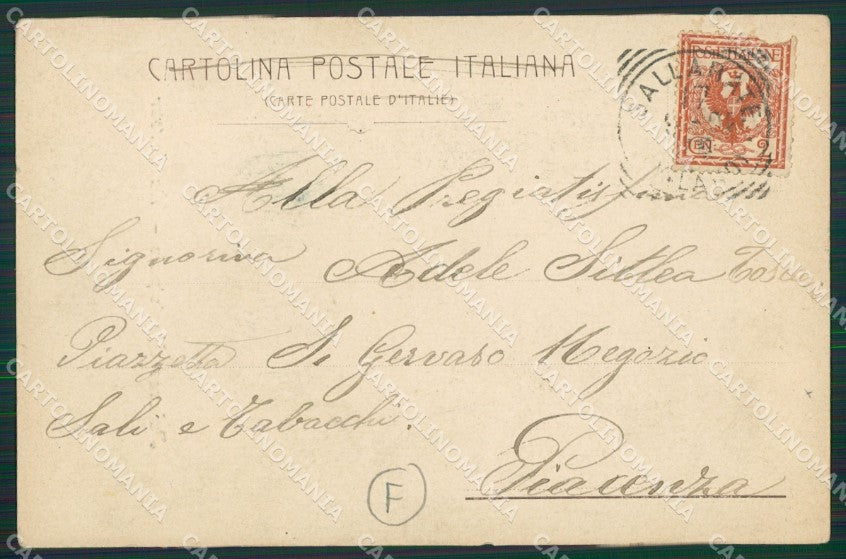 CARTOLINA POSTALE ITALIANA
(CARTE POSTALE D'ITALIE)
PALLANZA
POSTE ITALIANE
2
Alla Pregiatissima
Signorina Adele Sillea
Piazzetta S. Gervaso Negozio
Sali e Tabacchi.
Piacenza
F
CARTOLINOMANIA